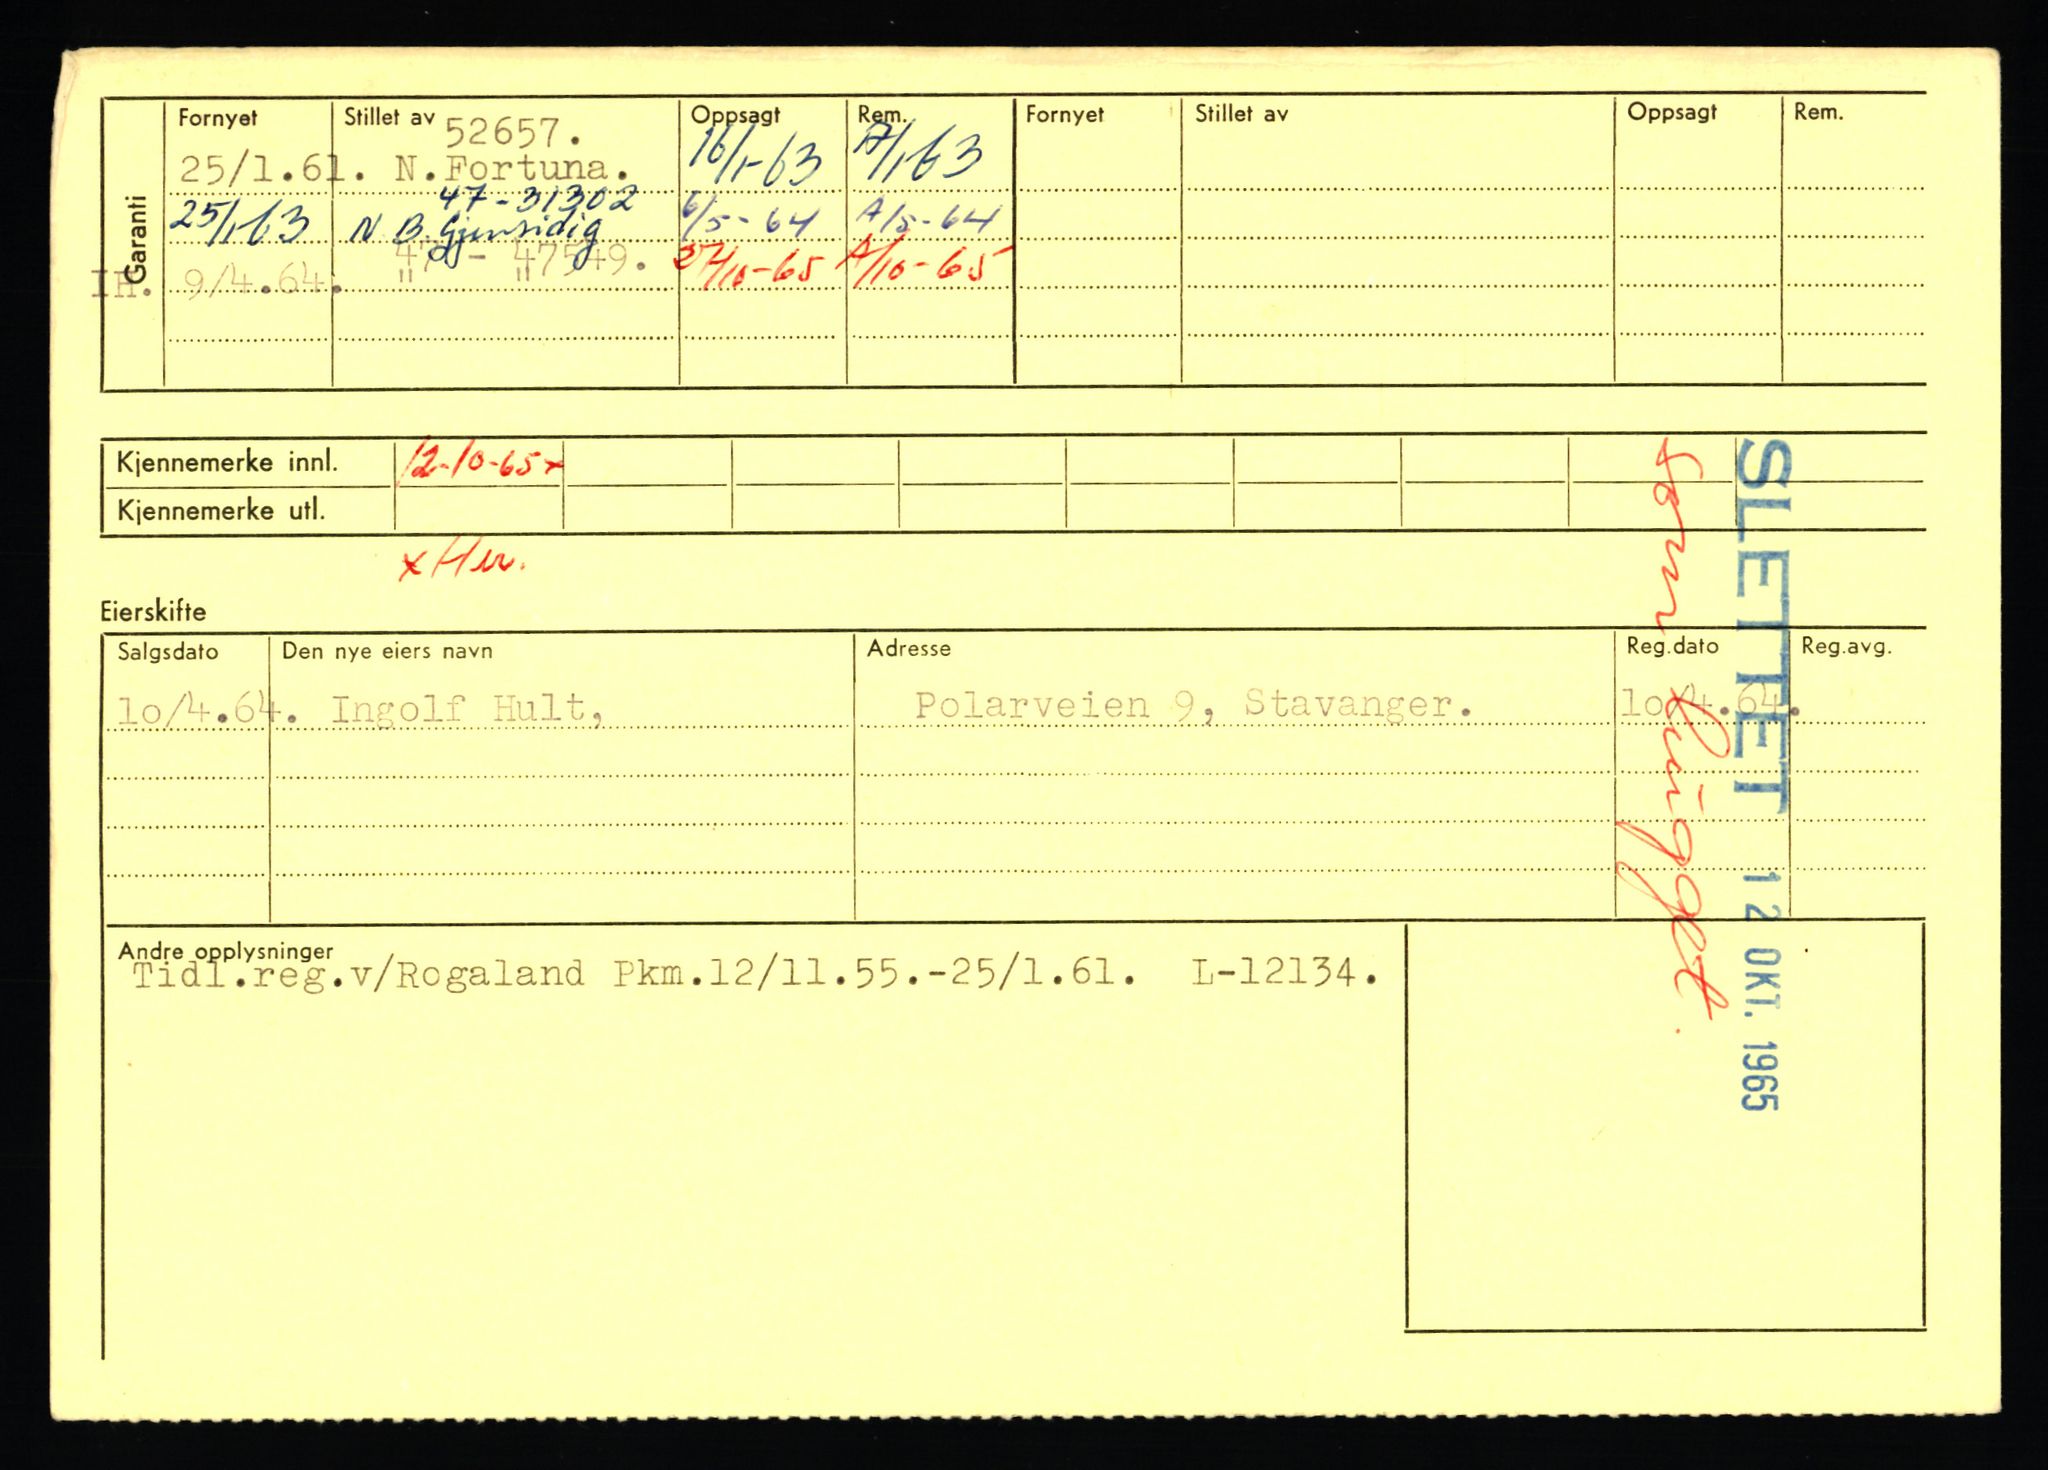 Garanti
Fornyet Stillet av Oppsagt Rem. Fornyet Stillet av Oppsagt Rem.
52657.
25/1.61. N.Fortuna. 16/1-63 A/1-63
47-31302
25/1-63 N B. Gjensidig 6/5-64 A/5-64
47 - 47549.
IH. 9/4.64. " " 27/10-65 A/10-65
Kjennemerke innl. 12-10-65x
Kjennemerke utl.
x Her.
Eierskifte
Salgsdato Den nye eiers navn Adresse Reg.dato Reg.avg.
lo/4.64. Ingolf Hult, Polarveien 9, Stavanger. lo/4.64.
Andre opplysninger
Tidl.reg.v/Rogaland Pkm.12/11.55.-25/1.61. L-12134.
SLETTET 12 OKT. 1965
som hugget.